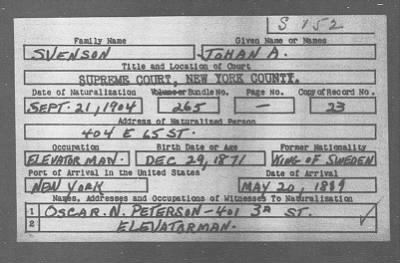 S 152
Family Name Given Name or Names
SVENSON JOHAN A.
Title and Location of Court
SUPREME COURT, NEW YORK COUNTY.
Date of Naturalization Volume or Bundle No. Page No. Copy of Record No.
SEPT. 21, 1904 265 — 23
Address of Naturalized Person
404 E 65 ST.
Occupation Birth Date or Age Former Nationality
ELEVATOR MAN. DEC 29, 1871 KING OF SWEDEN
Port of Arrival in the United States Date of Arrival
NEW YORK MAY 20, 1889
Names, Addresses and Occupations of Witnesses To Naturalization
1 OSCAR. N. PETERSON - 401 3R ST. ✓
2 ELEVATORMAN.